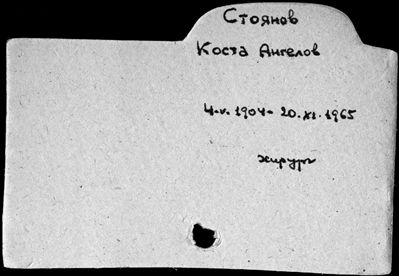 Стоянов
Коста Ангелов
4.V.1904 - 20.XI.1965
хирург